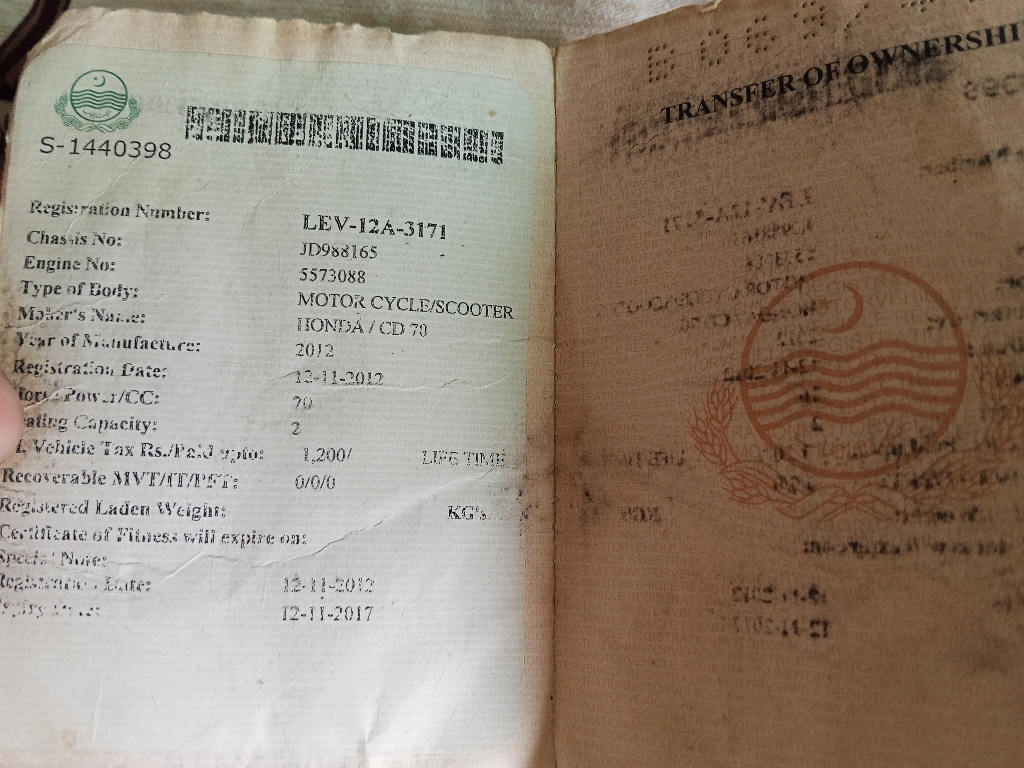 S-1440398
Registration Number: LEV-12A-3171
Chassis No: JD988165
Engine No: 5573088
Type of Body: MOTOR CYCLE/SCOOTER
Maker's Name: HONDA / CD 70
Year of Manufacture: 2012
Registration Date: 12-11-2012
Power/CC: 70
ating Capacity: 2
Vehicle Tax Rs./Paid upto: 1,200/ LIFE TIME
Recoverable MVT/IT/PFT: 0/0/0
Registered Laden Weight: KG's
Certificate of Fitness will expire on:
Special Note:
Registration Date: 12-11-2012
Date: 12-11-2017
TRANSFER OF OWNERSHI